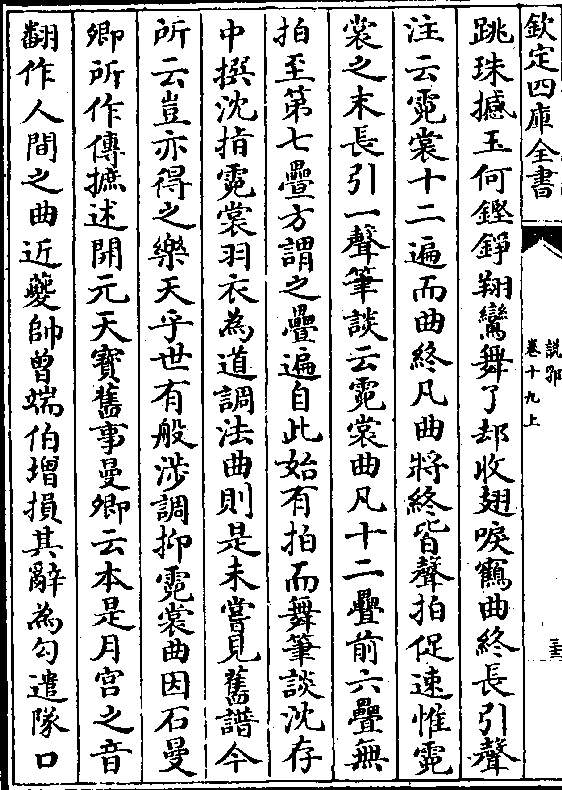 欽定四庫全書
說郛
卷十九上
跳珠撼玉何鏗錚翔鸞舞了却收翅唳鶴曲終長引聲
注云霓裳十二遍而曲終凡曲將終皆聲拍促速惟霓
裳之末長引一聲筆談云霓裳曲凡十二疊前六疊無
拍至第七疊方謂之疊遍自此始有拍而舞筆談沈存
中撰沈指霓裳羽衣為道調法曲則是未嘗見舊譜今
所云豈亦得之樂天乎世有般涉調拂霓裳曲因石曼
卿所作傳摭述開元天寶舊事曼卿云本是月宮之音
翻作人間之曲近夔帥曾端伯增損其辭為勾遣隊口